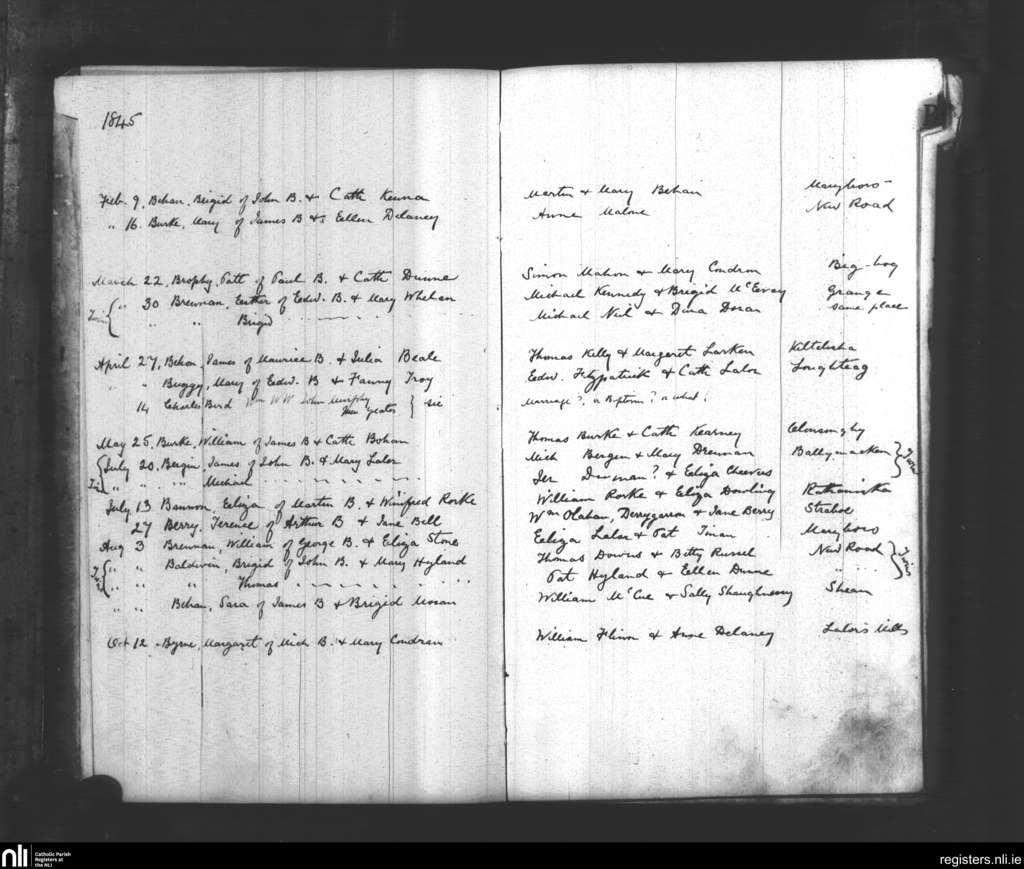 1845
Feb. 9, Behan, Brigid of John B. & Cath Kenna Martin & Mary Behan Maryboro
" 16. Burke, Mary of James B & Ellen Delaney Anne Malone New Road
March 22, Brophy, Patt of Paul B. & Cath Dunne Simon Mahon & Mary Condron Big-bog
Twins { " 30 Brennan, Esther of Edw. B. & Mary Whelan Michael Kennedy & Brigid McEvoy Grange
" " Brigid Michael Neil & Dina Doran same place
April 27, Behan, James of Maurice B. & Julia Beale Thomas Kelly & Margaret Larken Kiltelisha
" " Buggy, Mary of Edw. B & Fanny Troy Edw. Fitzpatrick & Cath Lalor Loughteag
14 Charles Bird Wm W W John Murphy } sic Marriage?, a Baptism? a what?
May 25, Burke, William of James B & Cath Bohan Thomas Burke & Cath Kearney Clonsoughy
{ July 20, Bergin, James of John B. & Mary Lalor Mich Bergen & Mary Drennan Ballymacken } Twins
Twins " " Michael Jer Drennan? & Eliza Cheevus
July 13 Bannon, Eeliza of Martin B. & Winifred Rorke William Rorke & Eliza Dowling Rathaniska
27 Berry, Terence of Arthur B & Jane Bell Wm Olahan, Derrygarron & Jane Berry Straboe
Aug 3 Brennan, William of George B. & Eliza Stones Eeliza Lalor & Pat Tinan Maryboro
Twins { " " Baldwin, Brigid of John B. & Mary Hyland Thomas Downs & Betty Russel New Road } Twins
" " " Thomas Pat Hyland & Ellen Dunne " "
" " Behan, Sara of James B & Brigid Moran William McCue & Sally Shaughnessy Shean
Oct 12 Byrne, Margaret of Mich B. & Mary Condran William Flinn & Anne Delaney Lalor's Mills
nli Catholic Parish
Registers at
the NLI
registers.nli.ie